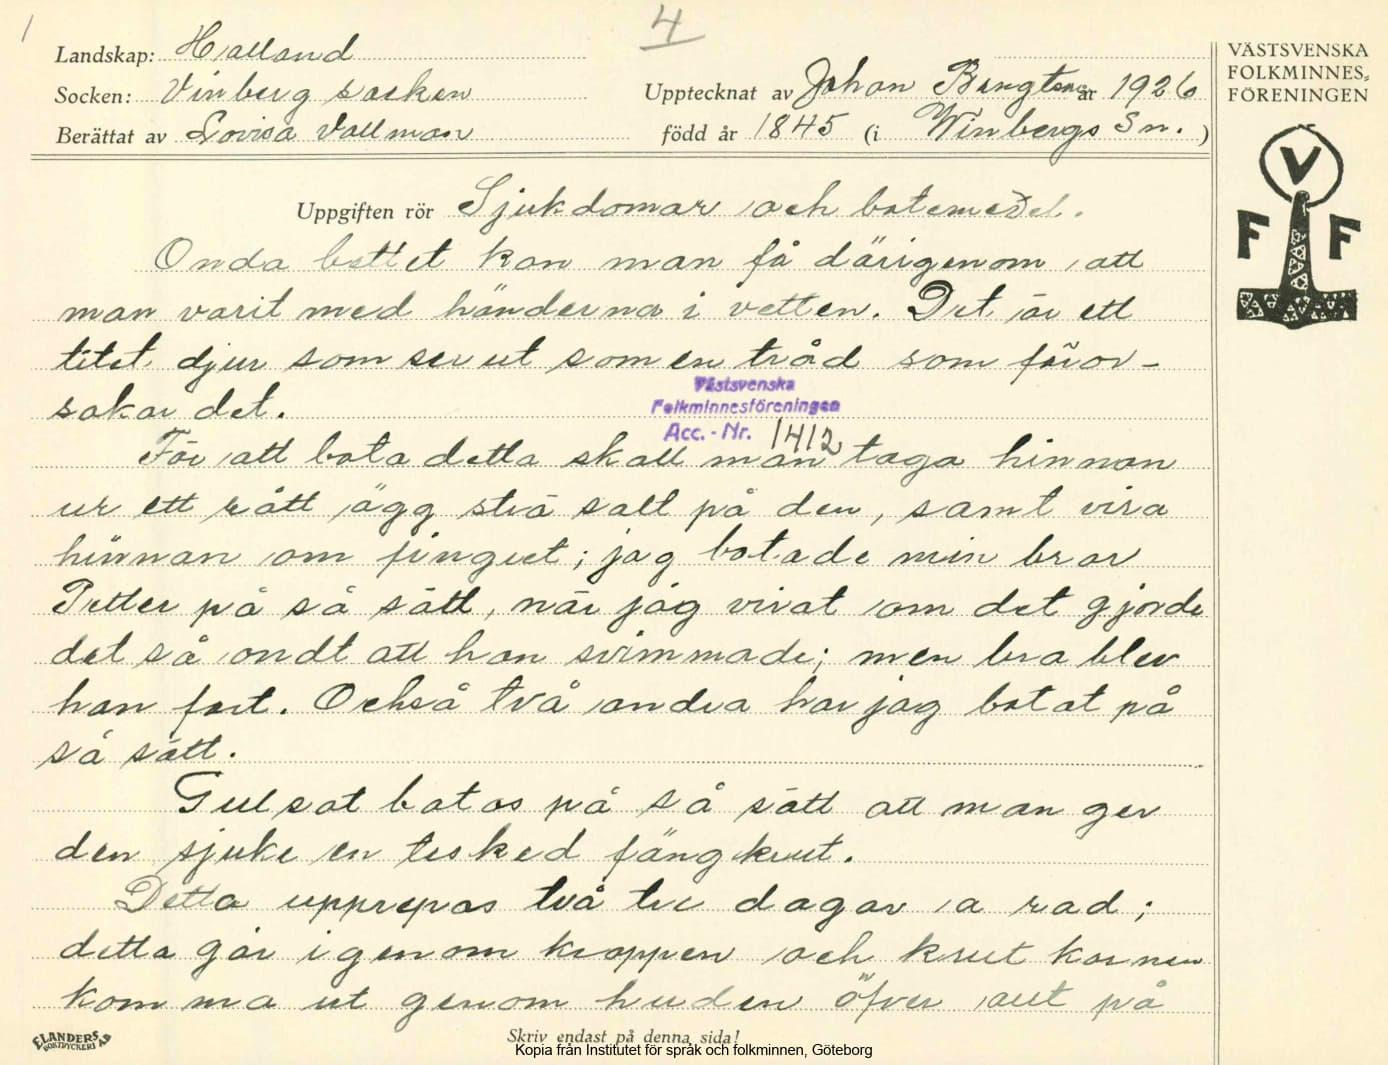 4
Landskap: Halland
Socken: Vinberg socken
Berättat av Lovisa Vallman
Upptecknat av Johan Bengtson år 1926
född år 1845 (i Winbergs Sn.)
VÄSTSVENSKA
FOLKMINNES-
FÖRENINGEN
V
F F
Uppgiften rör Sjukdomar och botemedel.
Onda bettet kan man få därigenom att
man varit med händerna i vetten. Det är ett
litet djur som ser ut som en tråd somföror-
sakar det.
Västsvenska
Folkminnesföreningen
Acc. - Nr. 1412
För att bota detta skall man taga hinnan
ur ett rått ägg strö salt på den, samt vira
hinnan om fingret; jag botade min bror
Petter på så sätt, när jag virat om det gjorde
det så ondt att han svimmade; men bra blev
han fort. Också två andra har jag botat på
så sätt.
Gulsot botas på så sätt att man ger
den sjuke en tesked fängkrut.
Detta upprepas två tre dagar a rad;
detta går igenom kroppen och krut kornen
komma ut genom huden öfver allt på
Skriv endast på denna sida!
ELANDERS
BOKTRYCKERI AB
Kopia från Institutet för språk och folkminnen, Göteborg